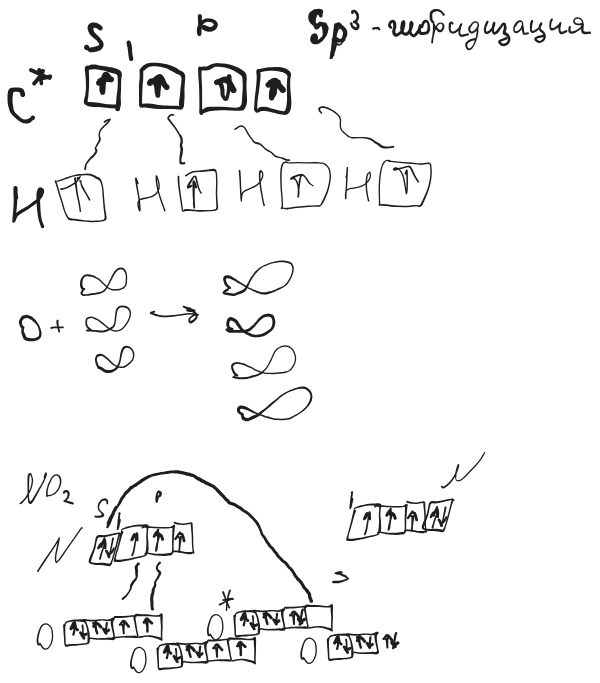 S p Sp³ - гибридизация
C*
H H H H
O +
NO₂
S p N
N
O O O* O